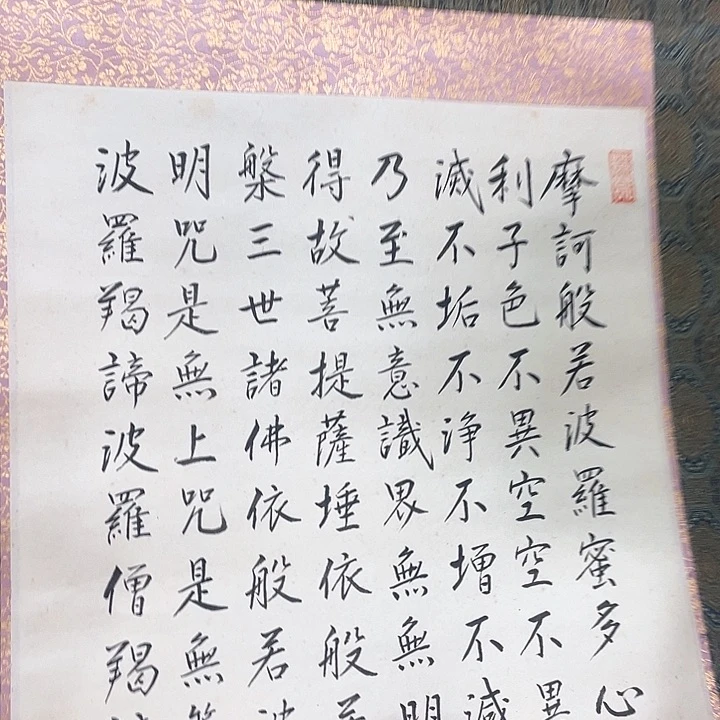 摩訶般若波羅蜜多心
利子色不異空空不異
滅不垢不淨不增不減
乃至無意識界無無明
得故菩提薩埵依般若
槃三世諸佛依般若波
明咒是無上咒是無等
波羅羯諦波羅僧羯